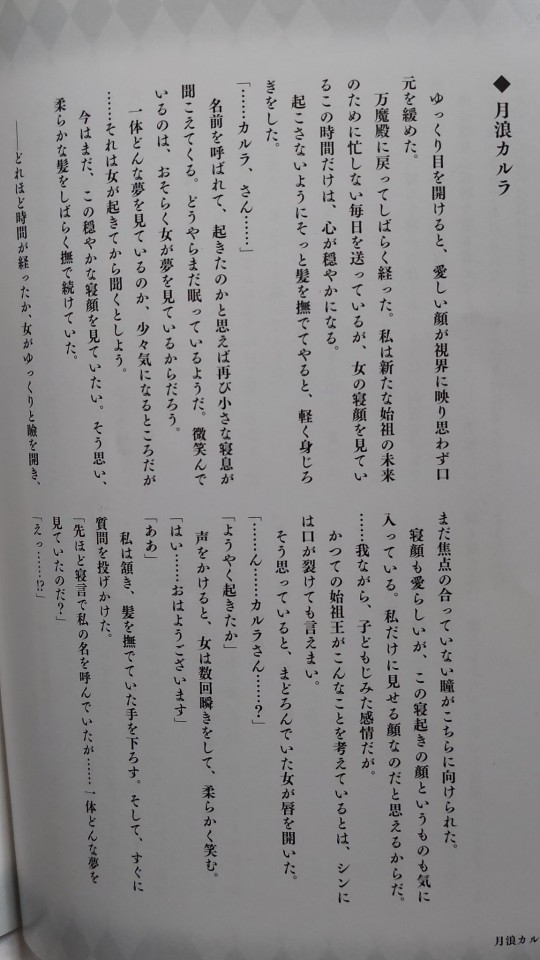 ◆月浪カルラ
ゆっくり目を開けると、愛しい顔が視界に映り思わず口
元を緩めた。
万魔殿に戻ってしばらく経った。私は新たな始祖の未来
のために忙しない毎日を送っているが、女の寝顔を見てい
るこの時間だけは、心が穏やかになる。
起こさないようにそっと髪を撫でてやると、軽く身じろ
ぎをした。
「……カルラ、さん……」
名前を呼ばれて、起きたのかと思えば再び小さな寝息が
聞こえてくる。どうやらまだ眠っているようだ。微笑んで
いるのは、おそらく女が夢を見ているからだろう。
一体どんな夢を見ているのか、少々気になるところだが
……それは女が起きてから聞くとしよう。
今はまだ、この穏やかな寝顔を見ていたい。そう思い、
柔らかな髪をしばらく撫で続けていた。
――どれほど時間が経ったか、女がゆっくりと瞼を開き、
まだ焦点の合っていない瞳がこちらに向けられた。
寝顔も愛らしいが、この寝起きの顔というものも気に
入っている。私だけに見せる顔なのだと思えるからだ。
……我ながら、子どもじみた感情だが。
かつての始祖王がこんなことを考えているとは、シンに
は口が裂けても言えまい。
そう思っていると、まどろんでいた女が唇を開いた。
「……ん……カルラさん……？」
「ようやく起きたか」
声をかけると、女は数回瞬きをして、柔らかく笑む。
「はい……おはようございます」
「ああ」
私は頷き、髪を撫でていた手を下ろす。そして、すぐに
質問を投げかけた。
「先ほど寝言で私の名を呼んでいたが……一体どんな夢を
見ていたのだ？」
「えっ……!?」
月浪カル